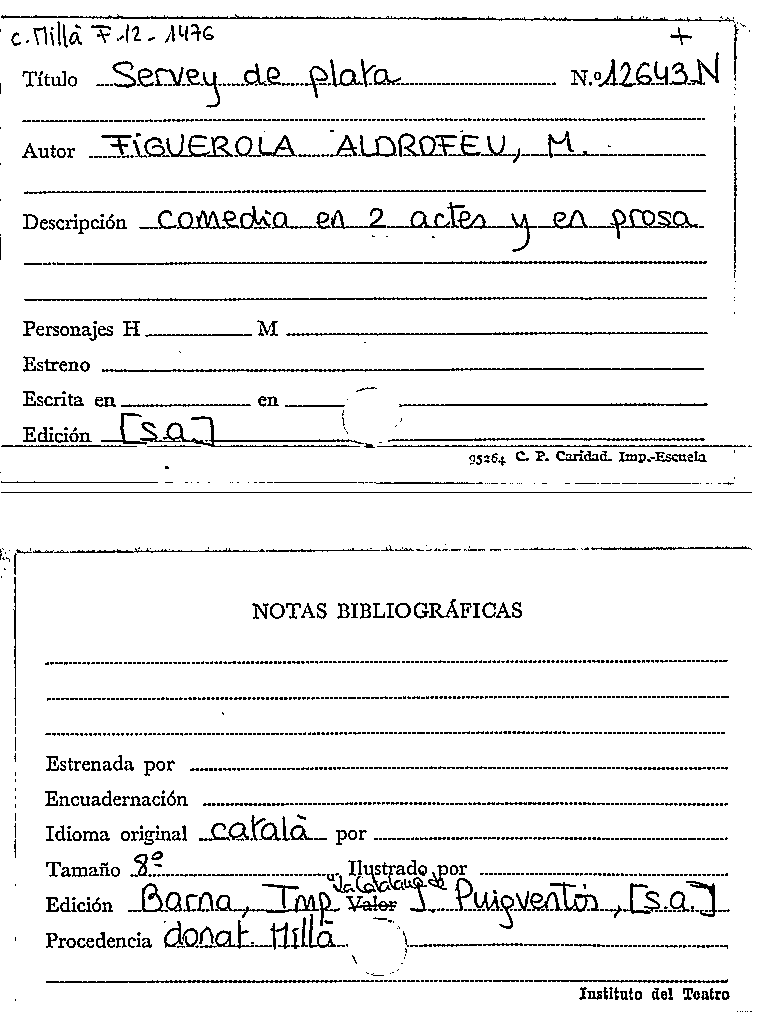 c. Millà F-12-1476 +
Título Servey de plata N.º 12643N
Autor FIGUEROLA ALDROFEU, M.
Descripción comedia en 2 actes y en prosa
Personajes H M
Estreno
Escrita en en
Edición [s.a.]
95264 C. P. Caridad. Imp.-Escuela
NOTAS BIBLIOGRÁFICAS
Estrenada por
Encuadernación
Idioma original català por
Tamaño 8º Ilustrado por
"La Catalana" de
Edición Barna, Imp Valor J. Puigventós, [s.a.]
Procedencia donat. Millà
Instituto del Teatro